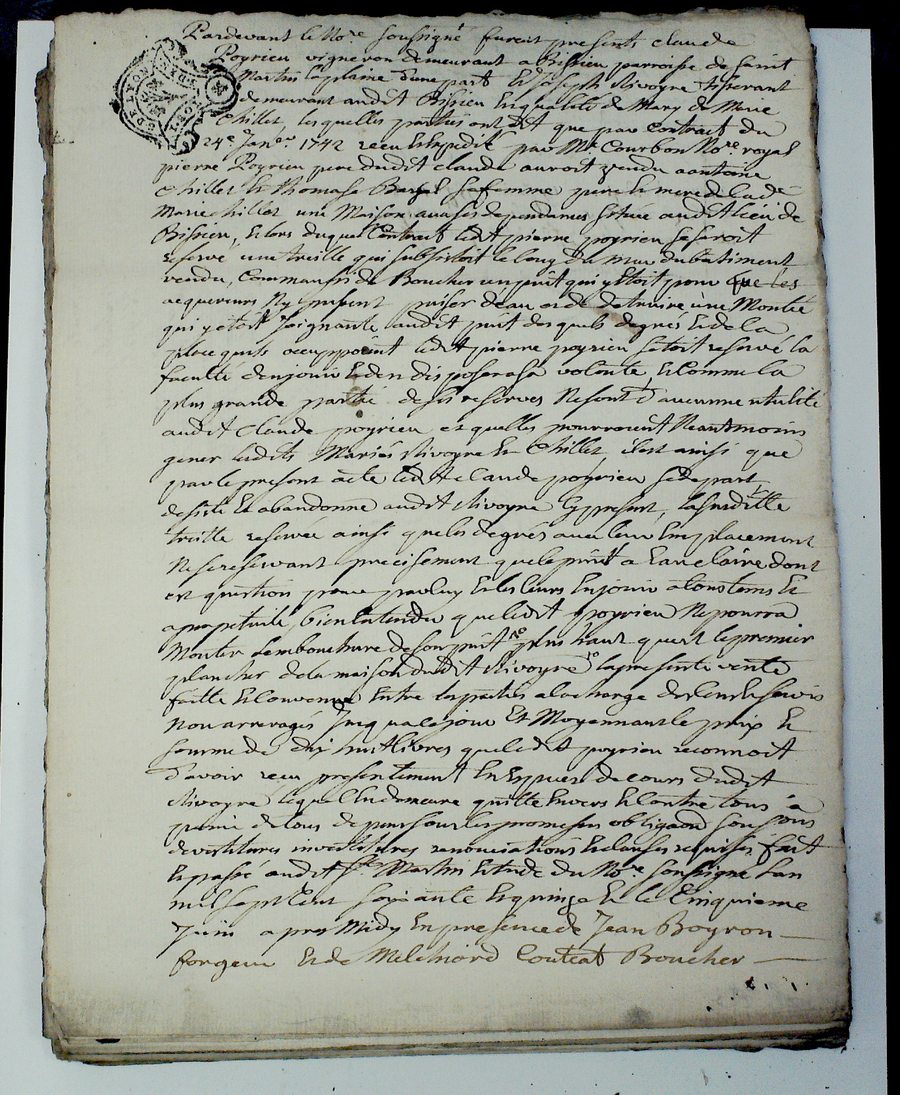 Pardevant le No.re soussigné furent presents claude
Poyrieu vigneron demeurant a Bissieu parroisse de saint
Martin laplaine d'une part Et Joseph Rivoyre tisserant
demeurant audit Bissieu En qualité de Mary de Marie
Chillet, lesquelles parties ont dit que par Contrat du
24e Janer 1742 recu et Expedié par Me Courbon No.re royal
pierre Poyrieu pere dudit claude auroit vendu a antoine
Chillet Et Thomase sa femme pere Et mere de lade
Marie chillet une Maison avec ses dependances située audit lieu de
Bissieu, Et lors duquel Contrat ledit pierre poyrieu se seroit
reservé une treille qui subsistoit le long du Mur du batiment
vendu, Comme aussi de Boucher un puit qui y Etoit pour que les
acquereurs N'y pussent puiser deau et de detruire une Montée
qui y étoit Joignante audit puit desquels degrés Et de la
place quils occuppoient ledit pierre poyrieu s'etoit reservé la
faculté d'en jouir Et d'en disposer a sa volonté, Et Comme la
plus grande partie de ses reserves Ne sont d'aucunne utulité
audit claude poyrieu et quelles pourroient Neantmoins
gener lesdits Mariés Rivoyre Et Chillet, il est ainsi que
par le present acte ledit claude poyrieu se depart
desiste Et abandonne audit Rivoyre Cy present, la susditte
treille reservée ainsi que les degrés avec leur Emplacement
Ne se reservant précisement que le puit a Eau claire dont
est question pour par luy Et les siens En jouir a tous tems Et
a perpetuité, bien Entendu que ledit poyrieu Ne pourra
Monter Lembouchure de son puit plus haut que est le premier
plancher de la maison dudit Rivoyre, la presente vente
faitte Et Convenue Entre les parties a la charge des Cens Et servis
Non arreragés Jusqua Ce jour Et Moyennant le prix Et
somme de dix huit livres que ledit poyrieu reconnoit
d'avoir recu presentement En Especes de cours dudit
Rivoyre lequel En demeure quitte Envers Et Contre tous a
peine de tous depens sous les promesses obligaons soumissions
devestitures investitures renonciations Et clauses requises, fait
Et passé audit St Martin Etude du No.re soussigné Lan
mil sept Cent soixante Et quinze Et le Cinquieme
Juin apres Midy En presence de Jean Boyron
forgeur Et de Melchiord Couteat Boucher